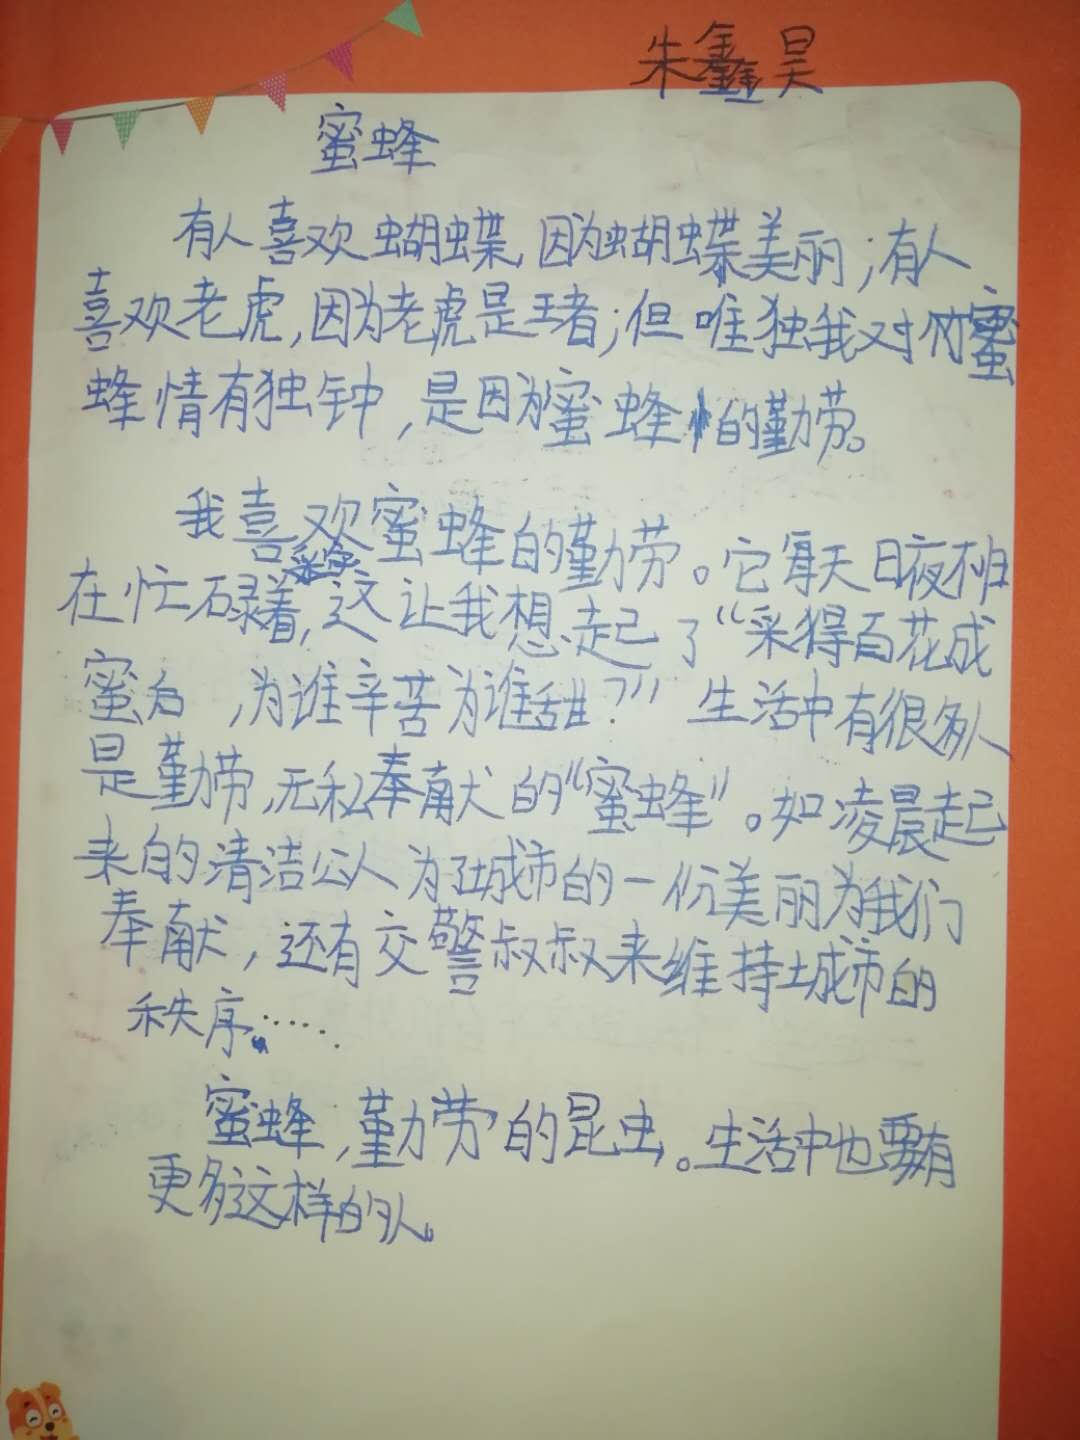 朱鑫昊
蜜蜂
有人喜欢蝴蝶,因为蝴蝶美丽;有人
喜欢老虎,因为老虎是王者;但唯独我对蜜
蜂情有独钟,是因为蜜蜂的勤劳。
我喜欢蜜蜂的勤劳。它每天日夜都
在忙碌着,这让我想起了“采得百花成
蜜后,为谁辛苦为谁甜?”生活中有很多人
是勤劳,无私奉献的“蜜蜂”。如凌晨起
来的清洁公人为了城市的一份美丽为我们
奉献,还有交警叔叔来维持城市的
秩序……
蜜蜂,勤劳的昆虫。生活中也要有
更多这样的人。